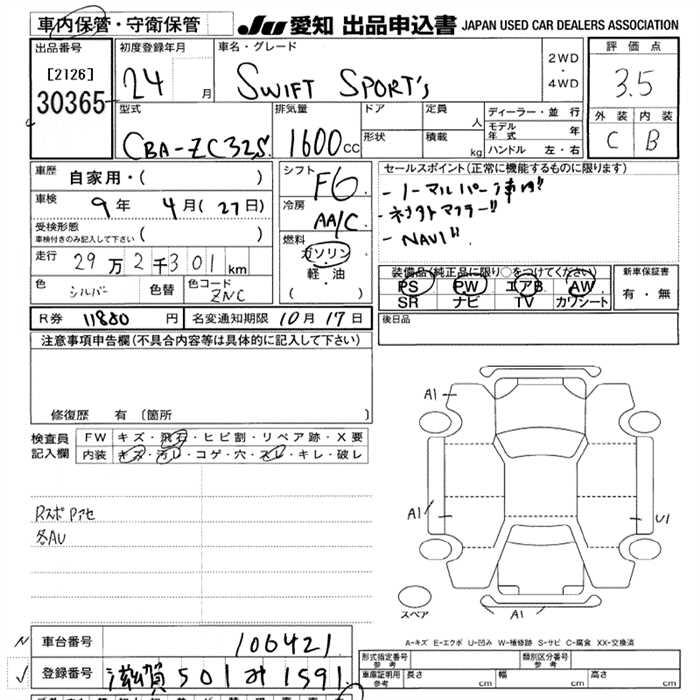 車内保管・守衛保管
JU 愛知 出品申込書 JAPAN USED CAR DEALERS ASSOCIATION
出品番号
[2126]
30365
初度登録年月
24 月
車名・グレード
SWIFT SPORT's
2WD
・
4WD
評価点
3.5
外装 内装
C B
型式
CBA-ZC32S
排気量
1600cc
ドア
形状
定員 人
積載 kg
ディーラー・並行
モデル年式 年
ハンドル 左・右
車歴 自家用・( )
車検 9年 4月(27日)
受検形態
車検付きのみ記入して下さい ( )
走行 29万2千301km
色 シルバー 色替 色コード ZNC
シフト F6
冷房 AA/C
燃料
ガソリン
・
軽・油
( )
セールスポイント(正常に機能するものに限ります)
- ノーマルパー
- マフラー
- NAVI
装備品(純正品に限り○をつけてください)
PS PW エアB AW
SR ナビ TV カワシート
新車保証書
有・無
R券 11880円 名変通知期限 10月17日
後日品
注意事項申告欄(不具合内容等は具体的に記入して下さい)
修復歴 有 〔箇所 〕
検査員記入欄
FW キズ・飛石・ヒビ割・リペア跡・X要
内装 キズ・汚レ・コゲ・穴・スレ・キレ・破レ
Rスポ Pアセ
各AU
A1
A1
U1
A1
スペア
A-キズ E-エクボ U-凹み W-補修跡 S-サビ C-腐食 XX-交換済
車台番号 106421
登録番号 滋賀 501 1591
形式指定番号
参考
類別区分番号
参考
車庫証明用
参考
長さ cm 幅 cm 高さ cm